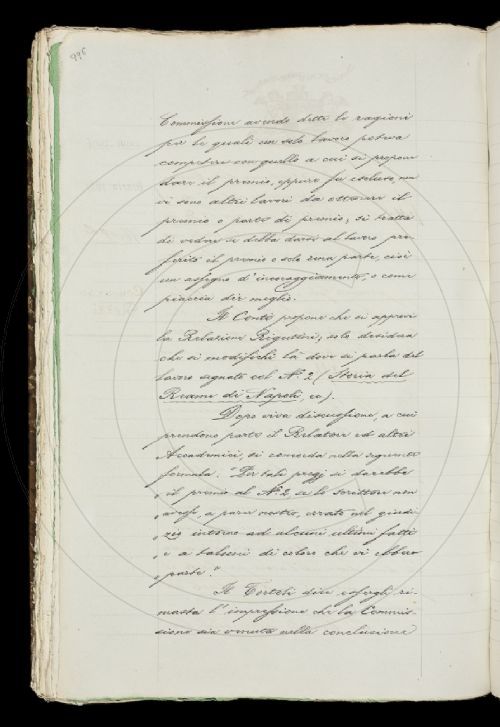 996
Commissione avendo dette le ragioni
per le quali un solo lavoro poteva
competere con quello a cui si propone
dare il premio, eppure fu escluso, non
vi sono altri lavori da ottenere il
premio o parte di premio; si tratta
di vedere se debba darsi al lavoro pre-
ferito il premio o solo una parte, cioè
un assegno d'incoraggiamento, o come
piaccia dir meglio.
Il Conti propone che si approvi
la Relazione Rigutini; solo desidera
che si modifichi là dove si parla del
lavoro segnato col N.º 2 (Storia del
Reame di Napoli, ec).
Dopo viva discussione, a cui
prendono parte il Relatore ed altri
Accademici, si concorda nella seguente
formula: "Per tali pregi si darebbe
" il premio al N.º 2, se lo scrittore non
" avesse, a parer nostro, errato nel giudi-
" zio intorno ad alcuni ultimi fatti
" e a taluni di coloro che vi ebbero
" parte".
Il Tortoli dice essergli ri-
masta l'impressione che la Commis-
sione sia venuta nella conclusione